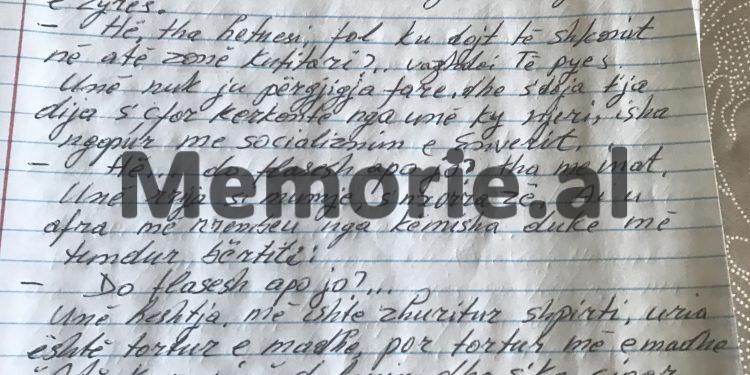 e zyrës.
– Hë, tha hetuesi, fol ku dojt të shkonit
në atë zonë kufitari?.. vazhdoi të pyes.
Unë nuk ju përgjigja fare, dhe s'doja t'ja
dija s'çfar kërkonte nga unë ky njeri, isha
ngopur me socializmin e Enverit.
– Hë... do flasesh apo jo? tha me inat.
Unë rrija si mumje, s'nxorra zë. Ai u
afra më rrëmbeu nga këmisha duke më
tundur bërtiti:
– Do flasesh apo jo?...
Unë heshtja, më ishte zhuritur shpirti, uria
është tortur e madhe, por tortur më e madhe
Memorie.al